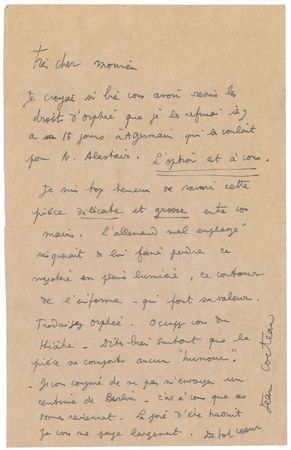 Très cher monsieur
Je croyais si bien vous avoir remis les
droits d'Orphée que je les refusai il y
a 15 jours à A Germain qui les voulait
pour N. Alastair. L'option est à vous.
Je suis trop heureux de savoir cette
pièce délicate et grosse entre vos
mains. L'allemand mal employé
risquerait de lui faire perdre ce
mystère en pleine lumière, ce contour
de l'informe - qui font sa valeur.
Traduisez Orphée. Occupez vous du
théâtre. Dites bien surtout que la
pièce ne comporte aucun "humour".
Je vous conjure de ne pas m'envoyer un
centime de Berlin - c'est à vous que ces
sommes reviennent. La joie d'être traduit
par vous me paye largement. De tout cœur
Jean Cocteau